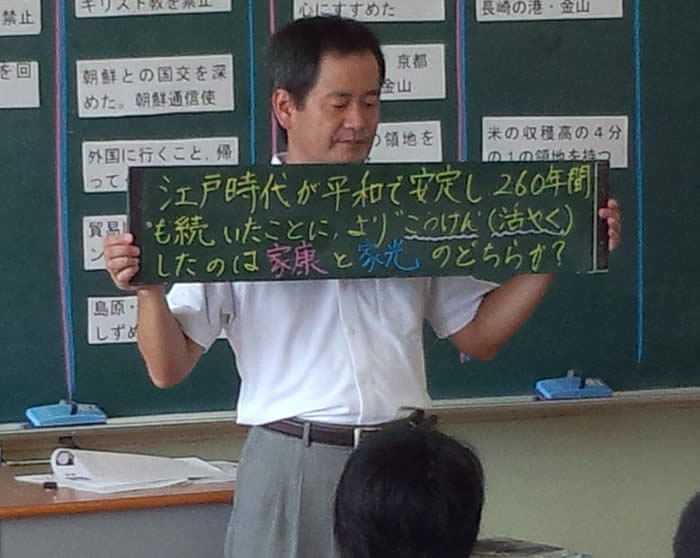 キリスト教を禁止
心にすすめた
長崎の港・金山
禁止
を回
朝鮮との国交を深
めた。朝鮮通信使
京都
金山
外国に行くこと、帰
って
の領地を
米の収穫高の４分
の１の領地を持つ
江戸時代が平和で安定し、260年間
も続いたことに、より“こうけん(活やく)
したのは家康と家光のどちらか?
貿易
島原・
しずめ